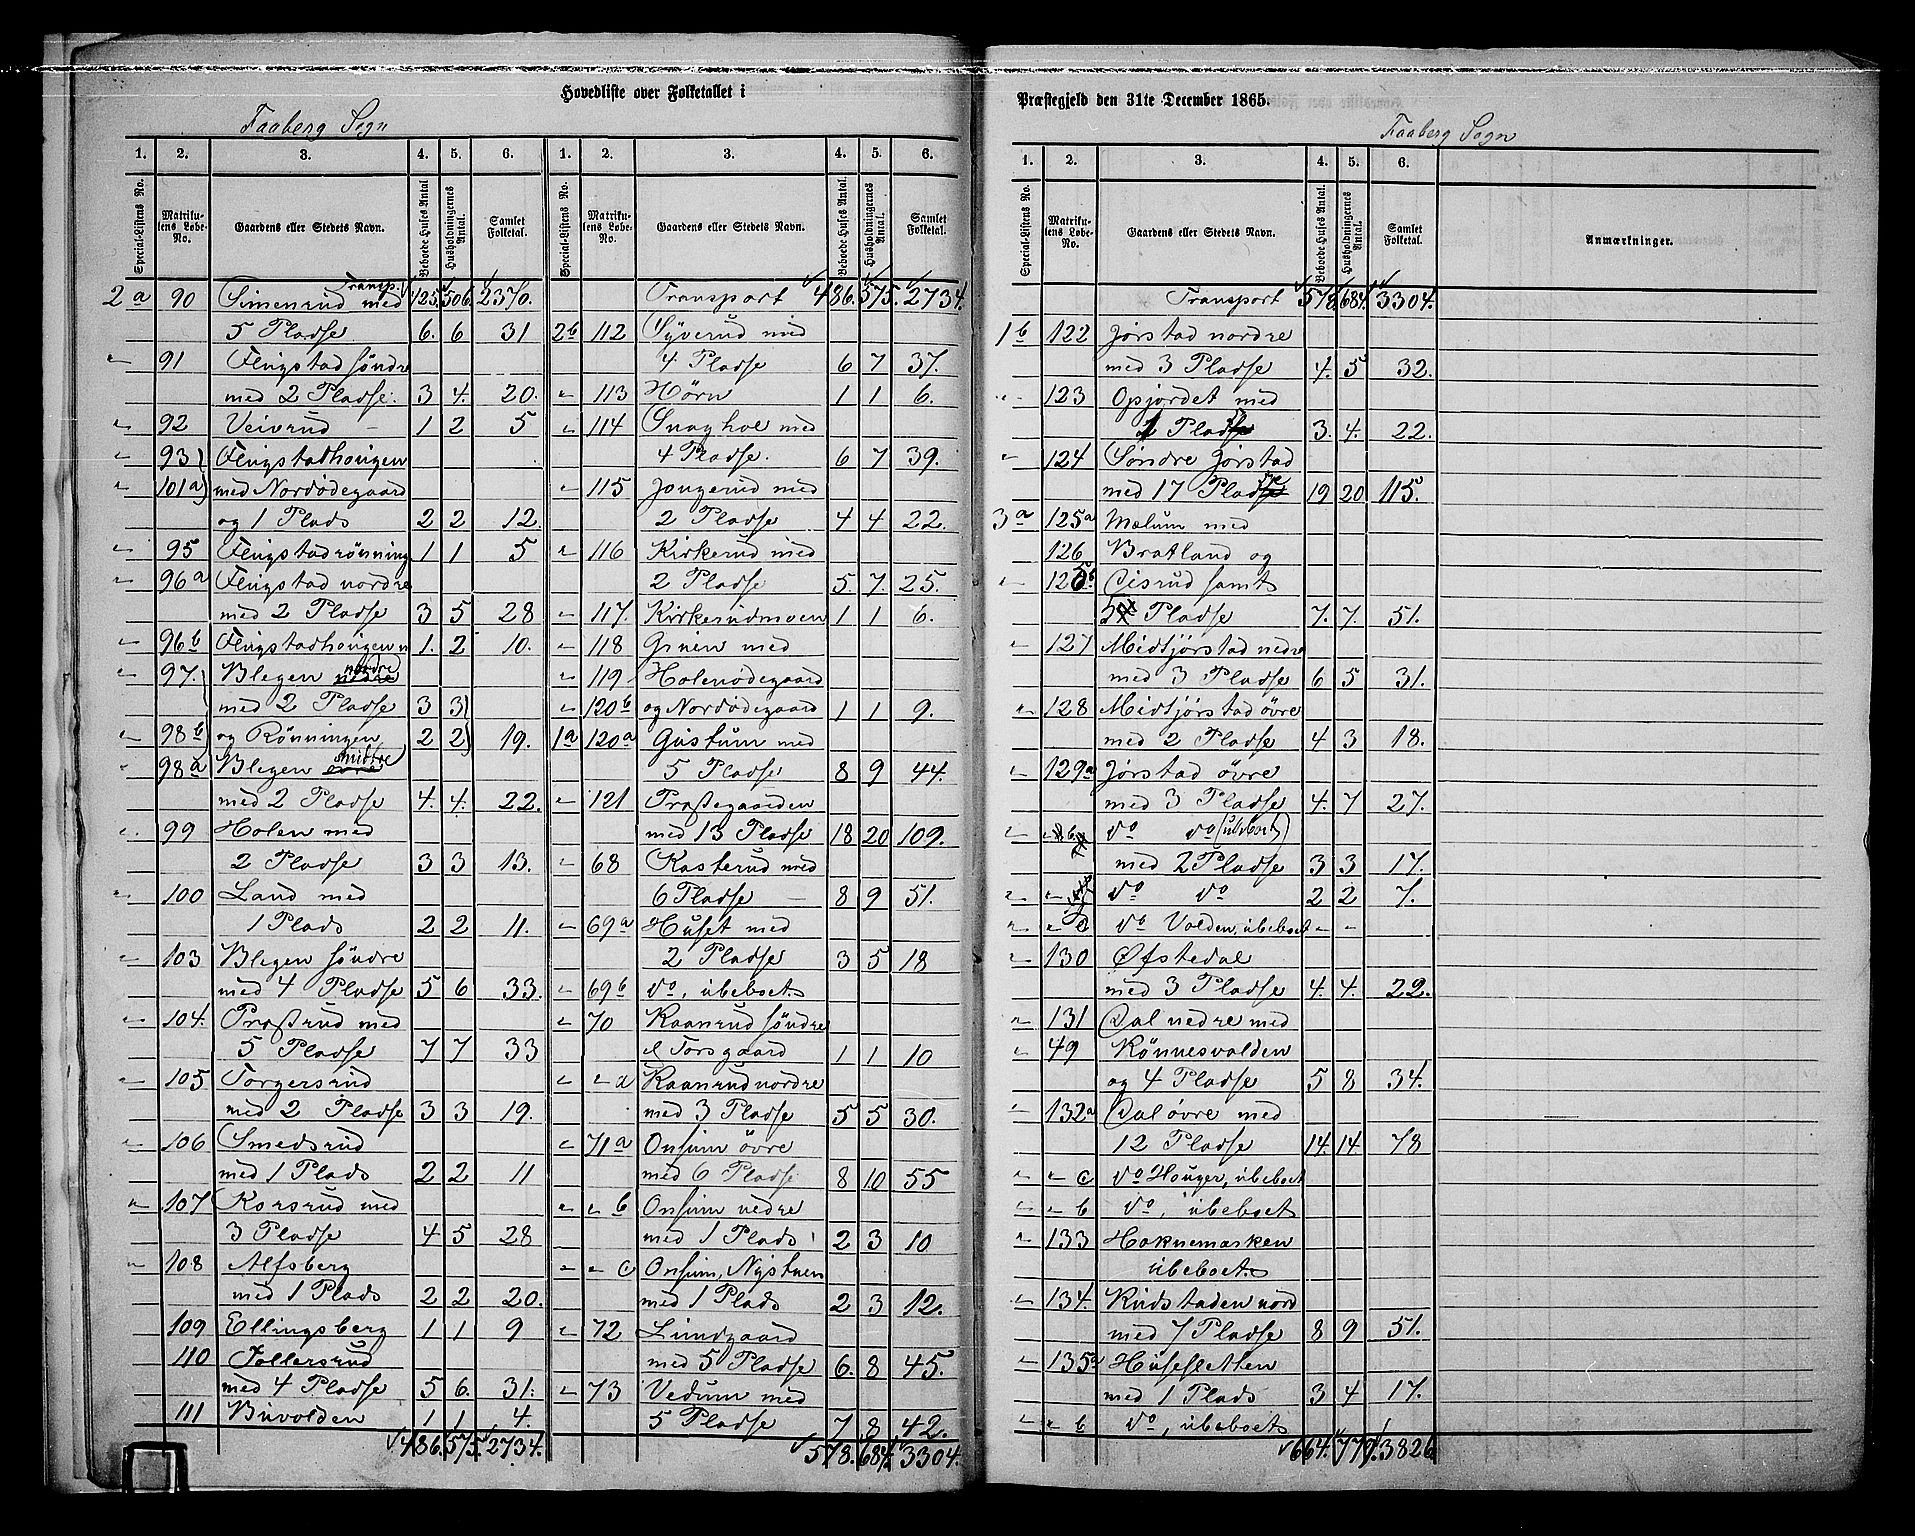 Hovedliste over Folketallet i
Faaberg Sogn
1. 2. 3. 4. 5. 6. 1. 2. 3. 4. 5. 6.
Special-Listens No. Matrikulens Løbe-No. Gaardens eller Stedets Navn. Beboede Huses Antal Husholdningernes Antal. Samlet Folketal. Special-Listens No. Matrikulens Løbe-No. Gaardens eller Stedets Navn. Beboede Huses Antal. Husholdningernes Antal. Samlet Folketal.
Transp.
2a 90 Simenrud med 425. 506. 2370.
5 Pladse 6. 6 31
" 91 Flugstad søndre
med 2 Pladse 3 4. 20.
" 92 Veivrud 1 2 5
" 93 Flugstadhougen
" 101a med Nordødegaard
og 1 Plads 2 2 12.
" 95 Flugstadrønning 1 1 5
" 96a Flugstad nordre
med 2 Pladse 3 5 28
" 96b Flugstadhougen n 1. 2 10.
" 97. Blegen nordre
med 2 Pladse 3 3
" 98b og Rønningen 2 2 19.
" 98a Blegen midtre
med 2 Pladse 4. 4. 22.
" 99 Holen med
2 Pladse 3 3 13.
" 100 Land med
1 Plads 2 2 11.
" 103 Blegen søndre
med 4 Pladse 5 6 33.
" 104. Proßrud med
5 Pladse 7 7 33
" 105 Torgersrud
med 2 Pladse 3 3 19.
" 106 Smedsrud
med 1 Plads 2 2 11
" 107 Korsrud med
3 Pladse 4 5 28
" 108 Alfsberg
med 1 Plads 2 2 20.
109 Ellingsberg 1 1 9
110 Jollersrud
med 4 Pladse 5 6. 31.
111 Buvolden 1 1 4.
486. 575. 2734.
Transport 486. 575. 2734.
2b 112 Syverud med
4 Pladse 6 7 37.
" 113 Hørn 1 1 6.
" 114 Svaghol med
4 Pladse. 6 7 39.
" 115 Jongerud med
2 Pladse 4 4 22.
" 116 Kirkerud med
2 Pladse 5. 7. 25.
" 117. Kirkerudmoen 1 1 6.
" 118 Grinen med
" 119 Holenødegaard
" 120b og Nordødegaard 1 1 9.
1a 120a Gustum med
5 Pladse 8 9 44.
" 121 Proßegaarden
med 13 Pladse 18 20 109.
" 68 Kasterud med
6 Pladse 8 9 51.
" 69a Huset med
2 Pladse 3 5 18
" 69b do, ubeboet.
" 70 Raanrud søndre
el Torsgaard 1 1 10
" " a Raanrud nordre
med 3 Pladse 5 5 30.
" 71a Onsum øvre
med 6 Pladse 8 10 55
" " b Onsum nedre
med 1 Plads 2 3 10
" " c Onsum, Nystuen
med 1 Plads 2 3 12.
" 72 Lundgaard
med 5 Pladse 6. 8 45.
" 73 Vedum med
5 Pladse 7 8 42.
578. 684. 3304.
Præstegjeld den 31te December 1865.
Faaberg Sogn
1. 2. 3. 4. 5. 6.
Special-Listens No. Matrikulens Løbe-No. Gaardens eller Stedets Navn. Beboede Huses Antal. Husholdningernes Antal. Samlet Folketal. Anmærkninger.
Transport 578. 684. 3304.
1b 122 Jørstad nordre
med 3 Pladse 4. 5 32.
" 123 Opjordet med
1 Plads 3. 4. 22.
" 124 Søndre Jørstad
med 17 Pladse 19 20 115.
3a 125a Mælum med
126 Bratland og
" 125b Cisrud samt
5 Pladse 7. 7. 51.
" 127 Midtjørstad nedre
med 3 Pladse 6 5 31.
" 128 Midtjørstad øvre
med 2 Pladse 4 3 18.
" 129a Jørstad øvre
med 3 Pladse 4. 7 27.
" " b do do (ubeboet)
med 2 Pladse 3 3 17.
" " do do 2 2 7.
" " d do Volden, ubeboet - -
" 130 Øfstedal
med 3 Pladse 4. 4. 22.
" 131 Dal nedre med
" 49 Rønnesvolden
og 4 Pladse 5 8 34.
" 132a Dal øvre med
12 Pladse 14. 14. 78
" " c do Houger, ubeboet
" " b do, ubeboet
" 133 Haknemarken
ubeboet.
" 134. Rudstaden nord
med 7 Pladse 8 9 51.
" 135a Husesletten
med 1 Plads 3 4 17.
" " b do, ubeboet
664. 779. 3826